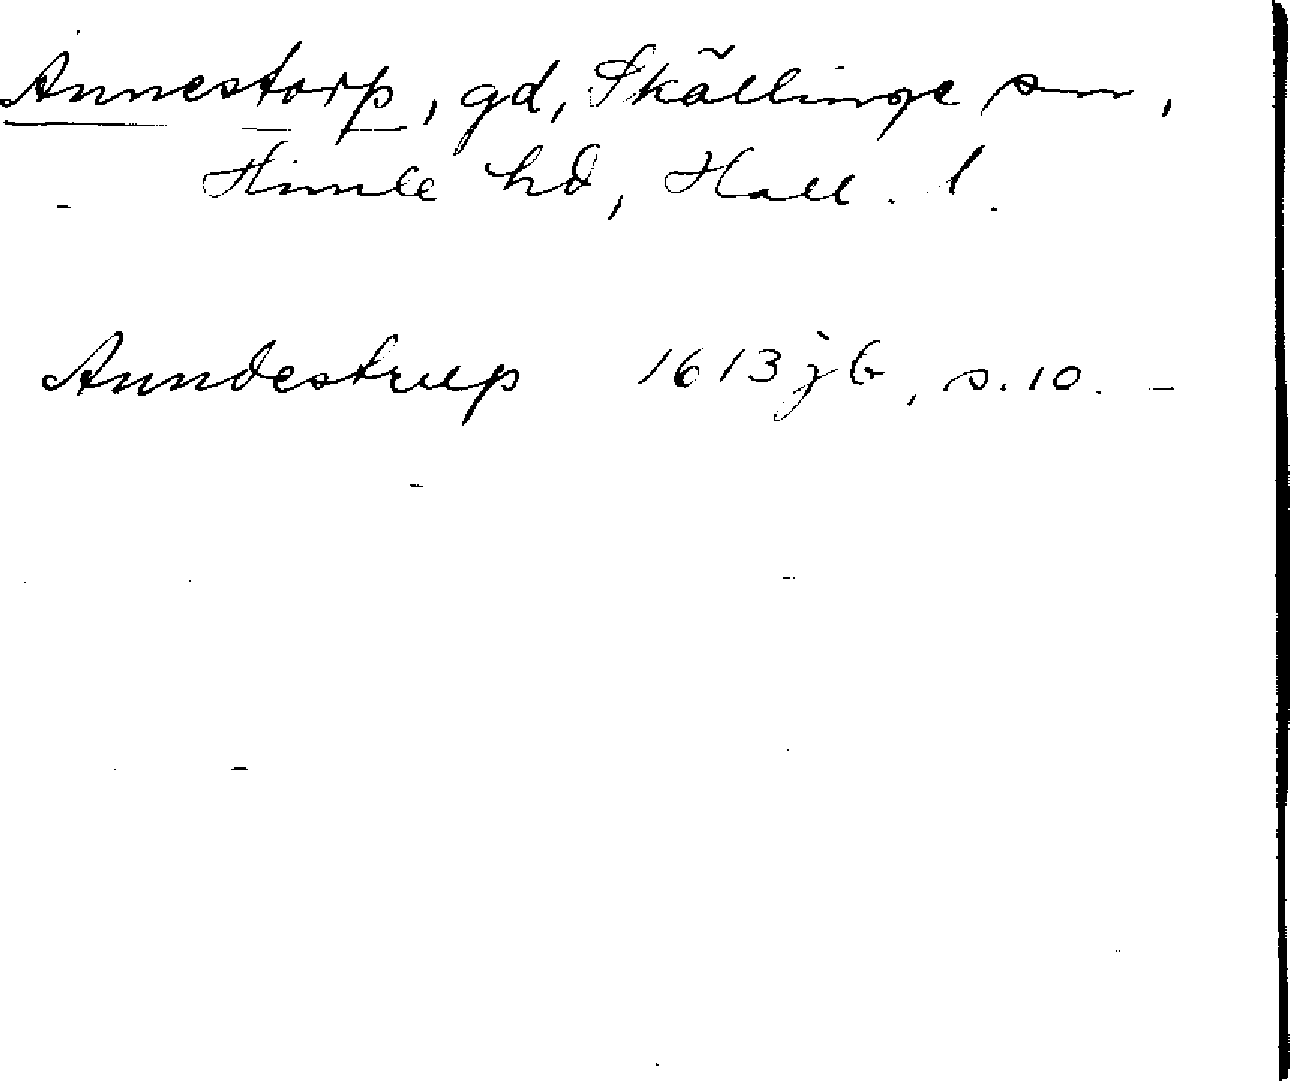 Annestorp, gd, Skällinge sn,
Himle hd, Hall. l.
Anndestrup 1613 jb, s. 10.